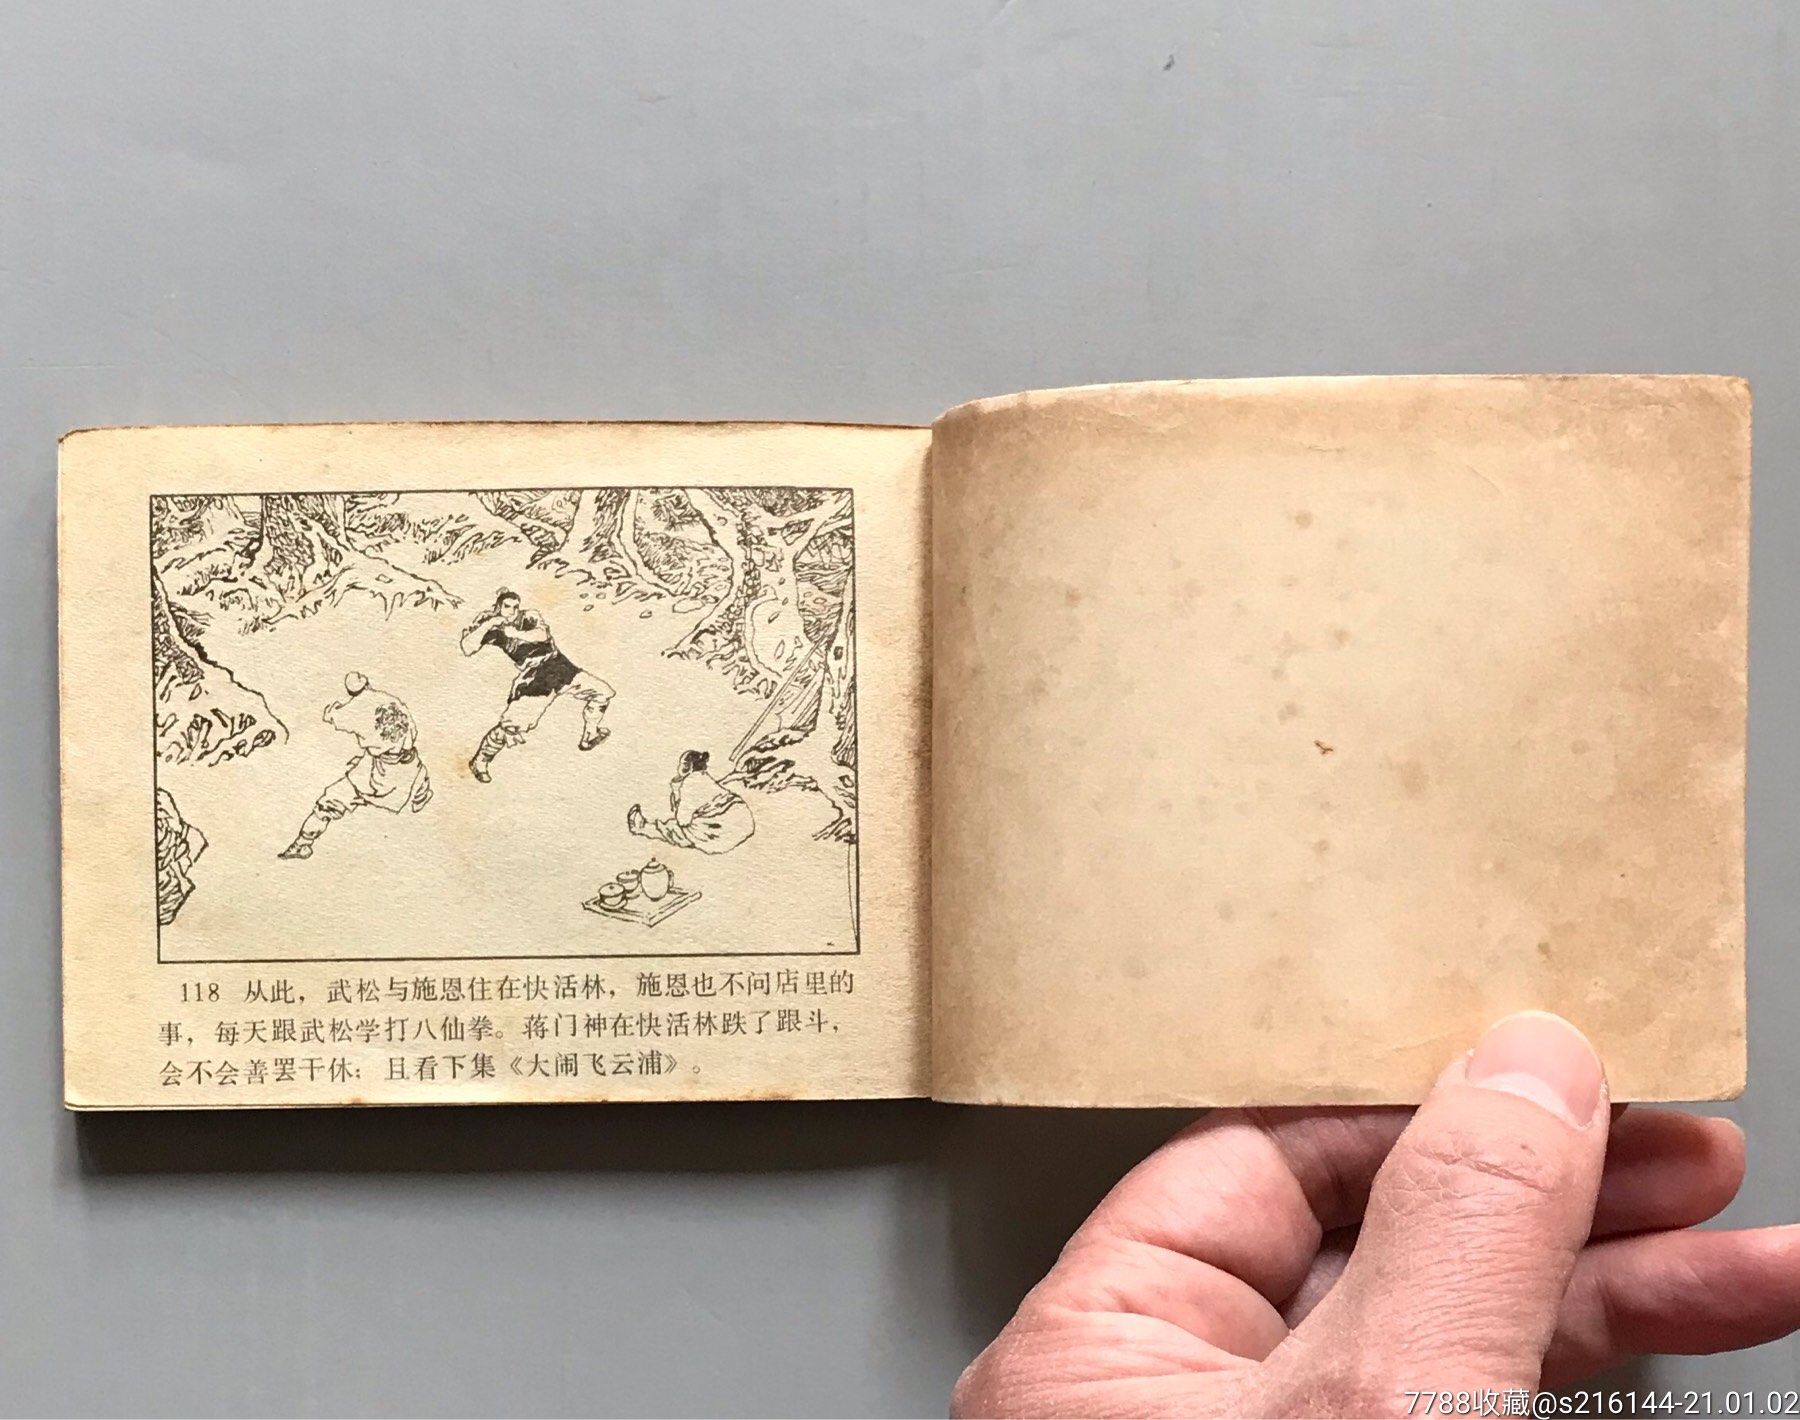 118 从此，武松与施恩住在快活林，施恩也不问店里的
事，每天跟武松学打八仙拳。蒋门神在快活林跌了跟斗，
会不会善罢干休；且看下集《大闹飞云浦》。
7788收藏@s216144-21.01.02